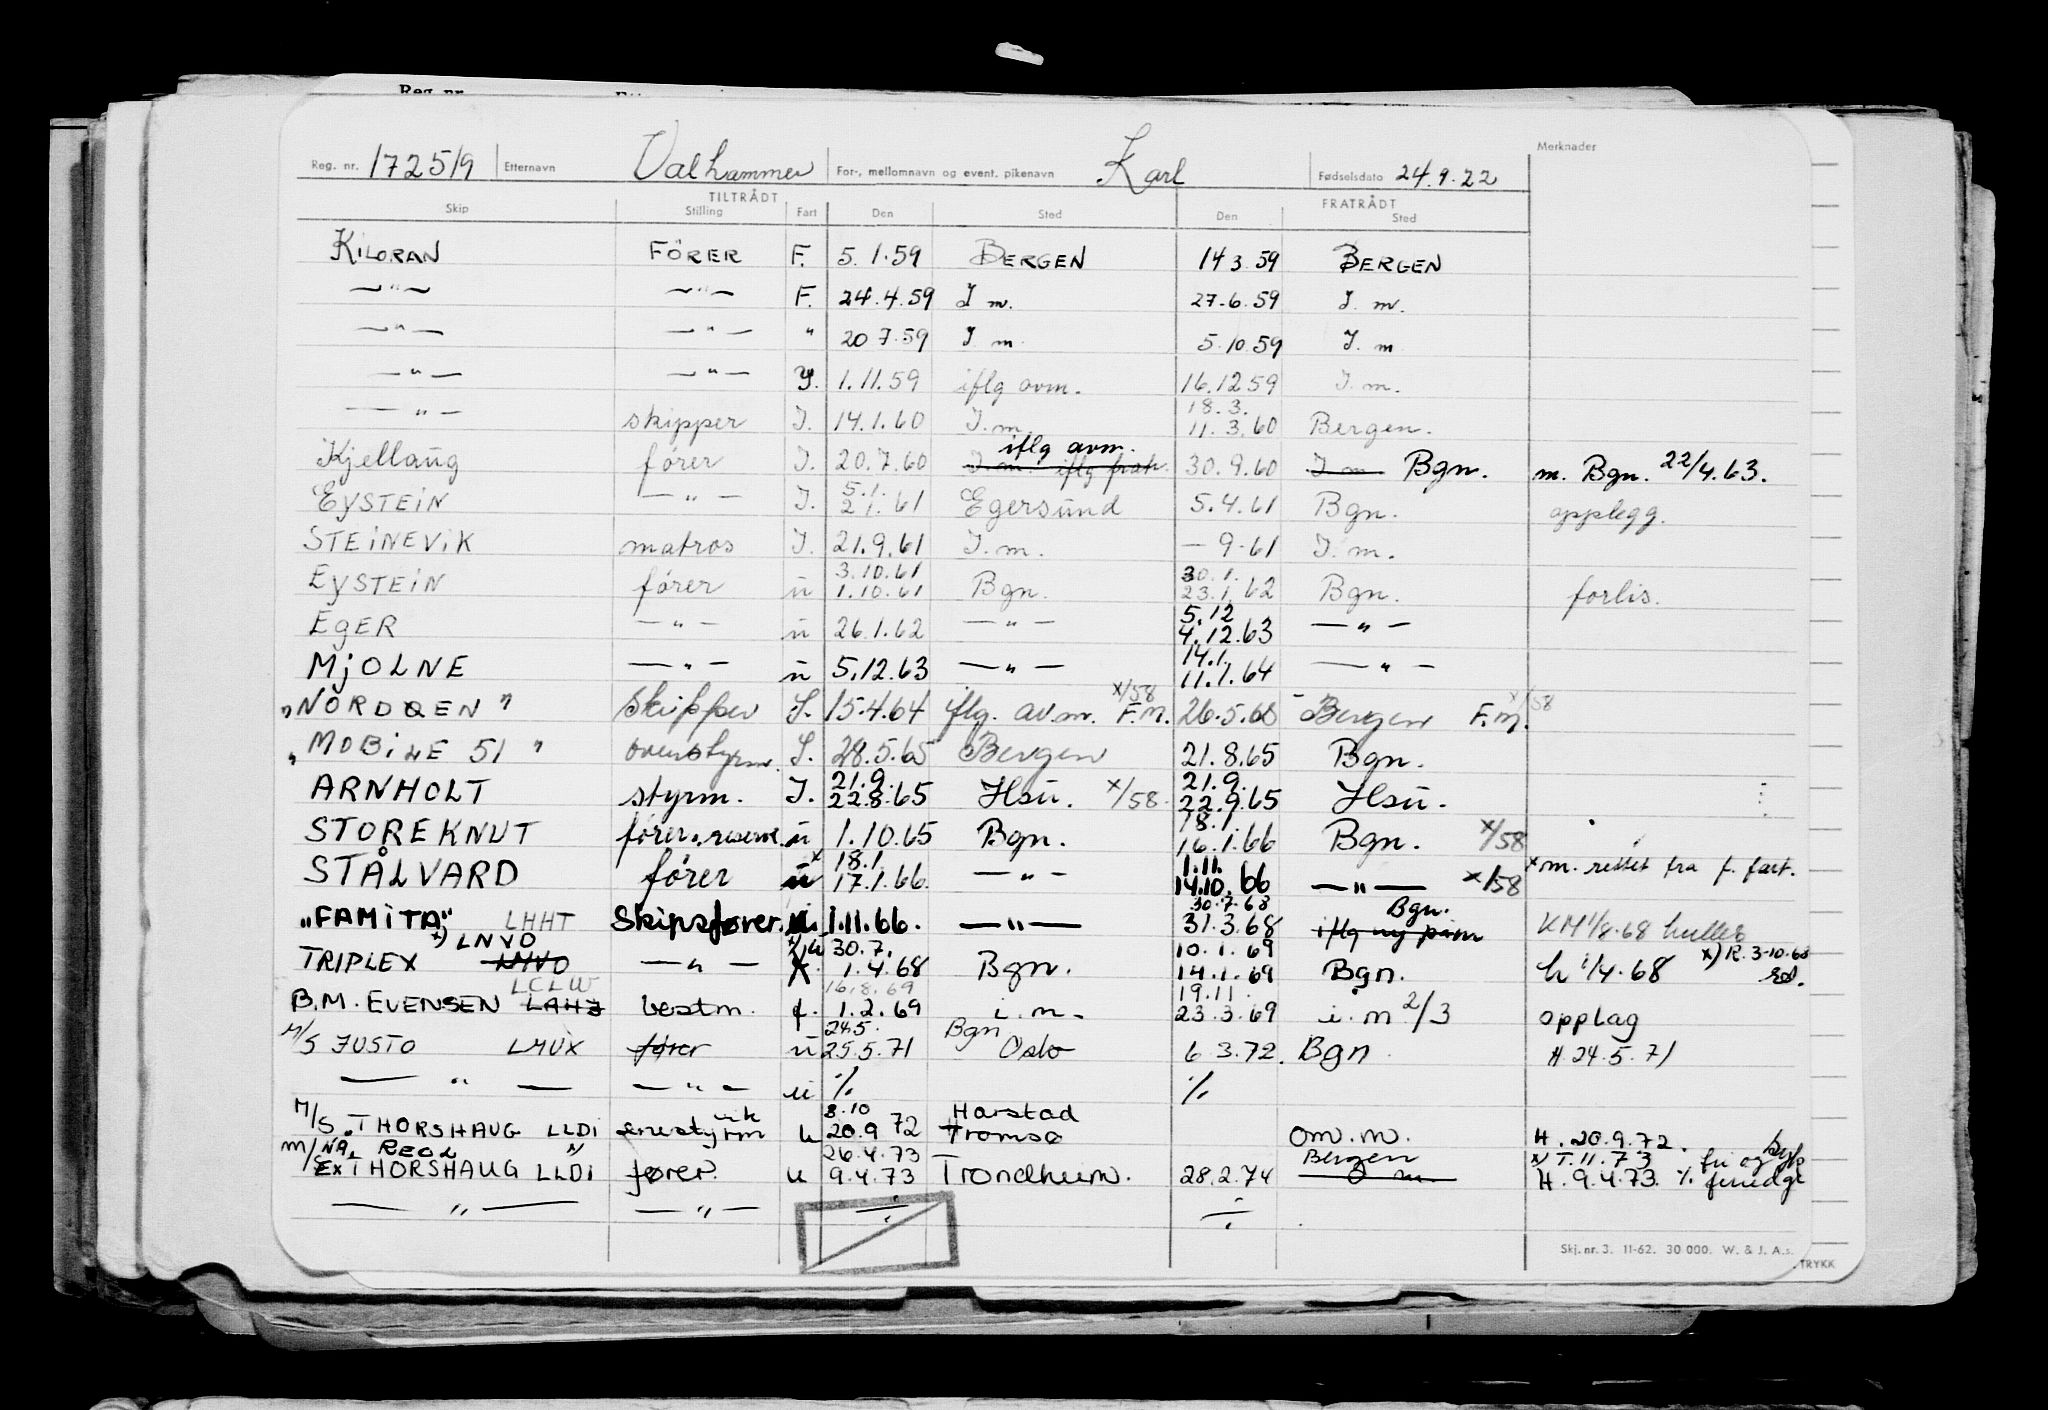 Reg. nr.
Merknader
Reg. nr. 172519 Etternavn Valhammer For-, mellomnavn og event. pikenavn Karl Fødselsdato 24.9.22
TILTRÅDT FRATRÅDT
Skip Stilling Fart Den Sted Den Sted
KILORAN FÖRER F. 5.1.59 BERGEN 14 3.59 BERGEN
—"— —"— F. 24.4.59 I m. 27.6.59 I. m.
—"— —"— " 20 7.59 I m. 5.10.59 I. m
—"— —"— 1.11.59 iflg avm. 16.12 59 I. m.
18.3.
—"— skipper I. 14.1.60 I. m. 11.3.60 Bergen.
iflg avm.
Kjellaug fører I. 20.7.60 I. m. iflg fratr. 30.9.60 I m Bgn. m. Bgn. 22/4.63.
5.1.
EYSTEIN —"— I. 2 1.61 Egersund 5.4.61 Bgn. opplegg.
STEINEVIK matros I. 21.9.61 I. m. — 9.61 I. m.
3.10.61 30.1.
EYSTEIN fører u 1.10.61 Bgn. 23.1.62 Bgn. forlis.
5.12
EGER —"— u 26.1.62 —"— 4.12.63 —"—
14.1.
MJOLNE —"— u 5.12.63 —"— 11.1.64 —"—
x/58 x/58
"NORDØEN" Skipper I. 15.4.64 iflg. av.m. F.M. 26.5.65 Bergen F.M.
"MOBILE 51" overstyrm. I. 28.5.65 Bergen 21.8.65 Bgn.
21.9. 21.9.
ARNHOLT styrm. I. 22.8.65 Hsu. x/58 22.9.65 Hsu.
18.1.
STOREKNUT fører, reserve. u 1.10.65 Bgn. 16.1.66 Bgn. x/58
18.1. 1.11.
STÅLVARD fører u x 17.1.66. —"— 14.10.66 —"— x/58 x m. rettet fra f. fart.
30.7.68 Bgn.
"FAMITA" LHHT Skipsfører. u 1.11.66. —"— 31.3.68 iflg ny påm KM 1/8.68 huller
x) LNVO x) u 30.7. 10.1.69 x) R. 3.10.68
TRIPLEX LMVO —"— 1.4.68 Bgn. 14.1.69 Bgn. h 1/4.68
LCLW 16.8.69 19.11.
B.M. EVENSEN LAHJ bestm. f. 1.2.69 i. m. 23.3.69 i. m 2/3 opplag
24.5. Bgn
M/S JUSTO LMUX fører u 25.5.71 Oslo 6 3.72. Bgn. H. 24.5.71
—"— —"— u % %
8.10 Harstad
M/S. THORSHAUG LLDI enestyrm u 20.9 72 Tromsø om. m. H. 20.9.72.
M/S REOL x) 26.4.73 Bergen x) T.11.73
Ex THORSHAUG LLDI fører. u 9.4.73 Trondheim. 28.2.74 H. 9.4.73.
—"— —"— ÷ ÷
Skj. nr. 3. 11-62. 30 000. W. & J. A.s.
TRYKK